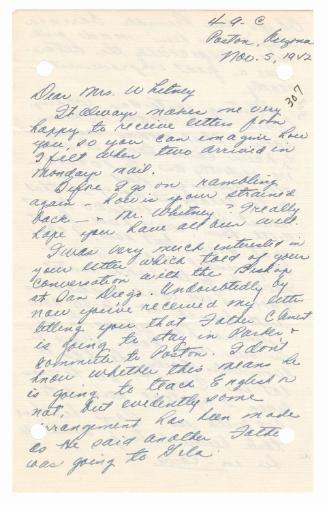 4 G. C
Poston, Arizona
Nov. 5, 1942
307
Dear Mrs. Whitney
It always makes me very
happy to receive letters from
you, so you can imagine how
I felt when two arrived in
Mondays mail.
Before I go on rambling
again - how is your strained
back - & Mr. Whitney? I really
hope you have all our well.
I was very much interested in
your letter which told of your
conversation with the Bishop
at San Diego. Undoubtedly by
now you've received my letter
telling you that Father Clement
is going to stay in Parker &
commute to Poston. I don't
know whether this means he
is going to teach English or
not, but evidently some
arrangement has been made
as he said another Father
was going to Gila.